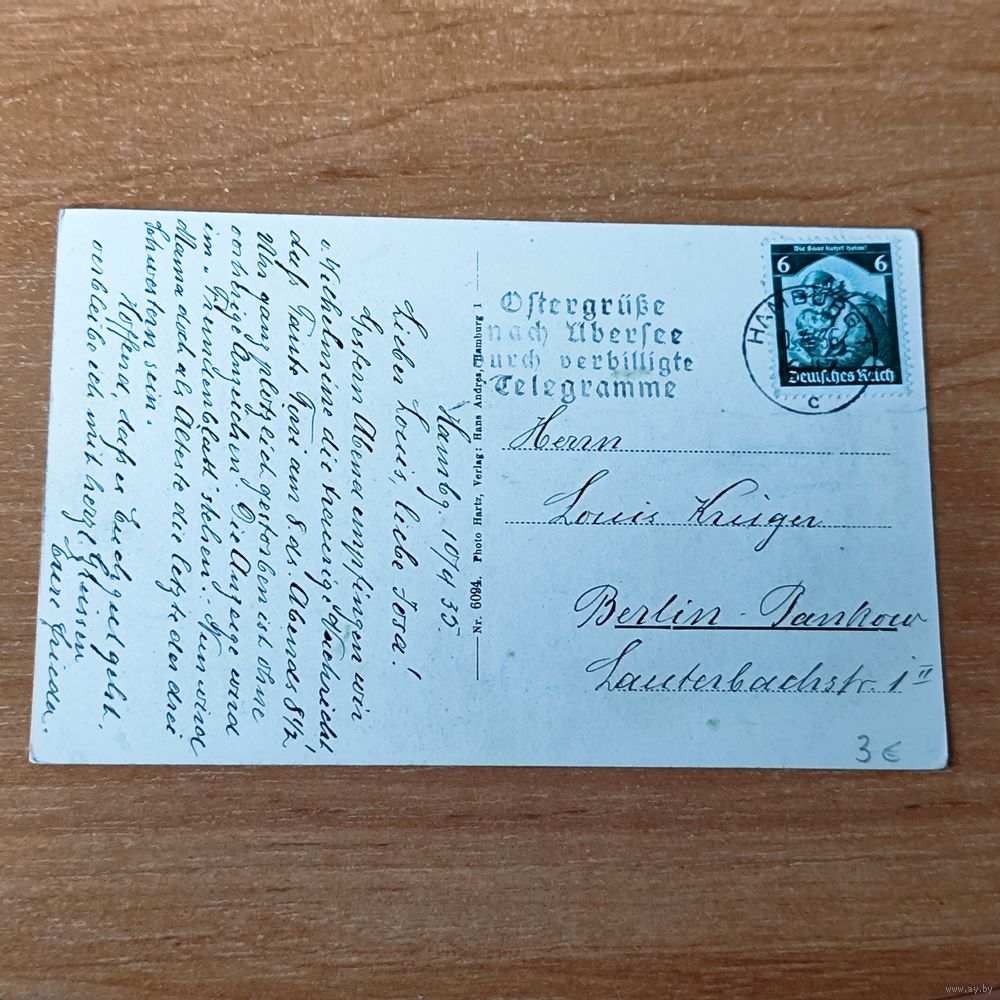 Die Saar kehrt heim!
6 6
Deutsches Reich
HAMBURG
C
Ostergrüße
nach Übersee
durch verbilligte
Telegramme
Herrn
Louis Krüger
Berlin-Pankow
Lauterbachstr. 1 II
3 €
Nr. 6094. Photo Hartz, Verlag: Hans Andres, Hamburg 1
Hambg. 10/4 35.
Lieber Louis, liebe Rosa!
Gestern Abend empfingen wir
v. Wilhelmine die traurige Nachricht,
daß Tante Toni am 8 ds. Abends 8 1/2
Uhr ganz plötzlich gestorben ist ohne
vorherige Anzeichen. Die Anzeige wird
im Fremdenblatt stehen. Nun wird
Mama doch als Älteste die letzte der drei
Schwestern sein.
Hoffend, daß es Euch gut geht,
verbleibe ich mit herzl. Grüssen
Eure Frieda.
www.ay.by